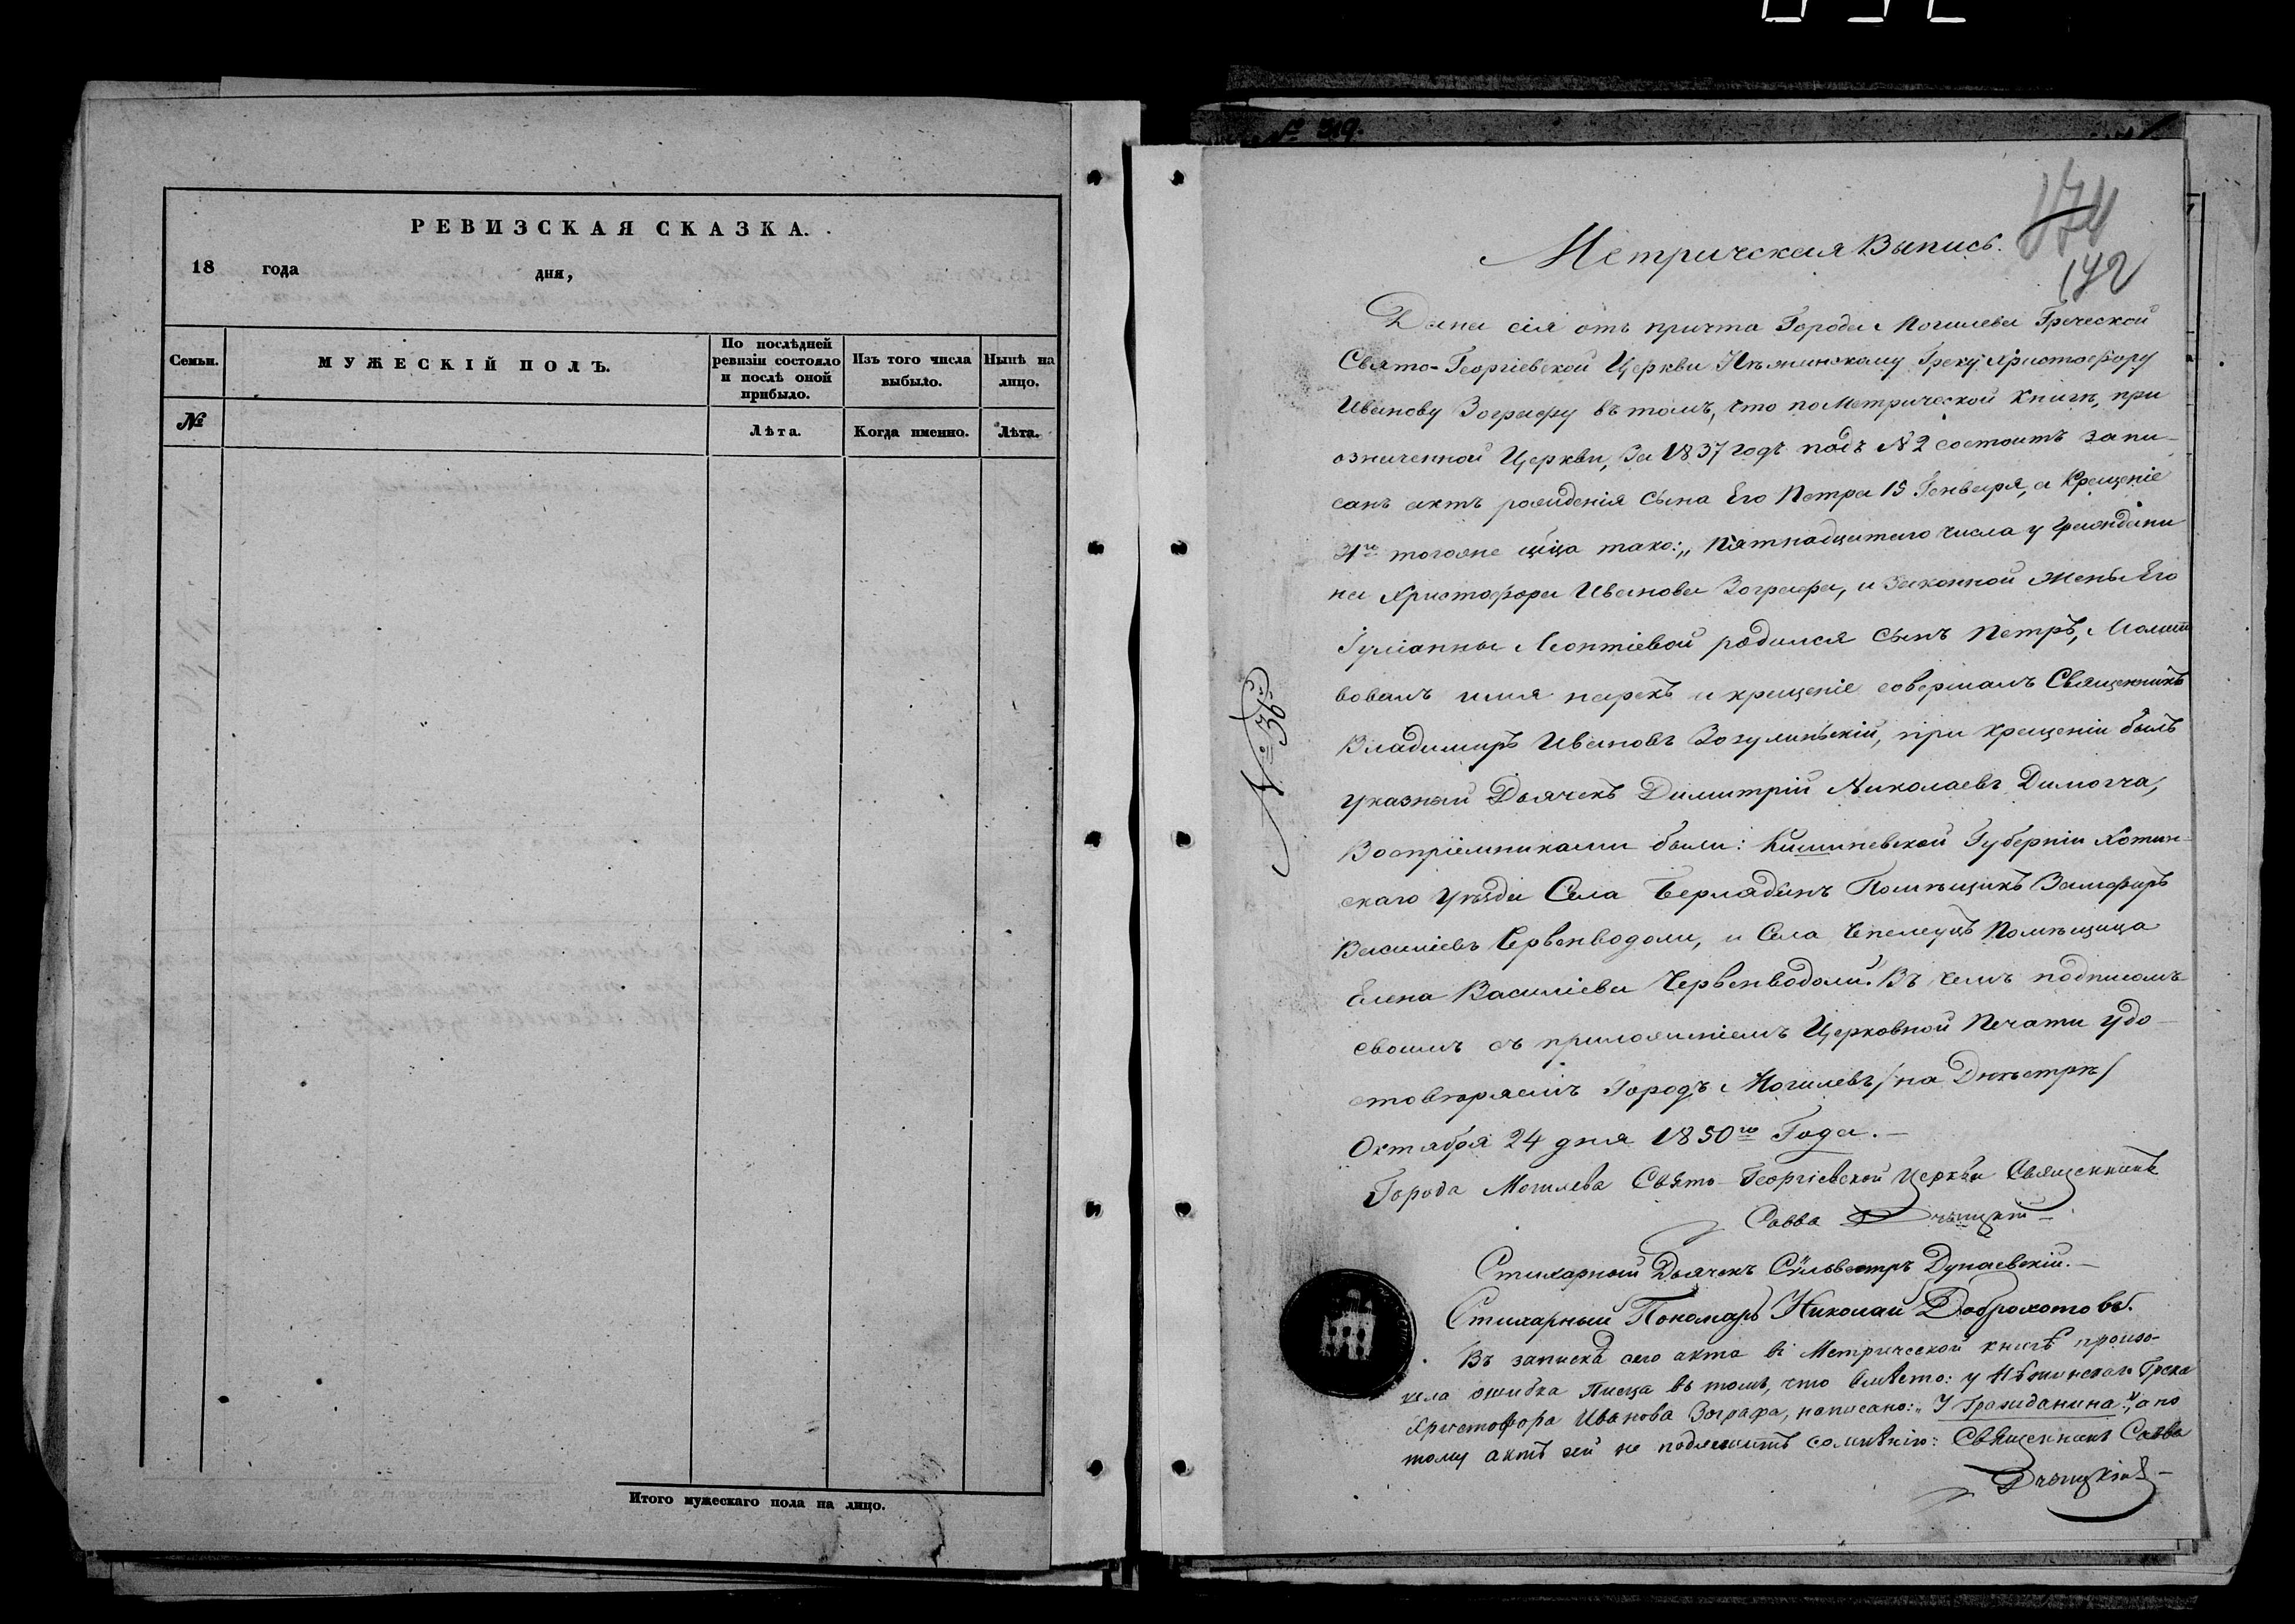 РЕВИЗСКАЯ СКАЗКА.
18 года дня,
Семьи.
МУЖЕСКІЙ ПОЛЪ.
По послѣдней ревизіи состояло и послѣ оной прибыло.
Изъ того числа выбыло.
Нынѣ на лицо.
№
Лѣта.
Когда именно.
Лѣта.
Итого мужескаго пола на лицо.
№ 319.
174
172
Метрическая Выпись.
Дана сія отъ причта Города Могилева Греческой
Свято-Георгіевской Церкви Нѣжинскому Греку Христофору
Иванову Зографу въ томъ, что по Метрической Книгѣ, при
означенной Церкви, За 1837 годъ подъ № 2 состоитъ запи-
санъ актъ рожденія сына Его Петра 15 Генваря, а Крещеніе
того же тако: „Пятнадцатого числа у Граждани
на Христофора Иванова Зографа, и Законной жены Его
Іуліанны Леонтіевой родился сынъ Петръ, Молит
вовалъ имя нарекъ и крещеніе совершалъ Священникъ
Владимиръ Ивановъ Зозулинскій, при крещеніи былъ
указный Дьячекъ Димитрій Николаевъ
Воспріемниками были: Кишиневской Губерніи Хотин-
скаго уѣзда Села Помѣщикъ Замфиръ
Василіевъ Червенводали, и Села Помѣщица
Елена Василіева Червенводали. Въ чемъ подписомъ
своимъ съ приложеніемъ Церковной Печати удо-
стовѣряемъ Городъ Могилевъ /на Днѣстрѣ/
Октября 24 дня 1850го Года.—
Города Могилева Свято Георгіевской Церкви Священникъ
Савва
Стихарный Дьячекъ Сѵльвестръ Дунаевскій.—
Стихарный Пономарь Николай Доброхотовъ.
№ 36.
Въ запискѣ сего акта въ Метрической книгѣ произо-
шла ошибка Писца въ томъ, что вмѣсто: у Нѣжинскаго Грека
Христофора Иванова Зографа, написано: „У Гражданина“, а по
тому актъ сей не подлежитъ сомнѣнію: Священникъ Савва